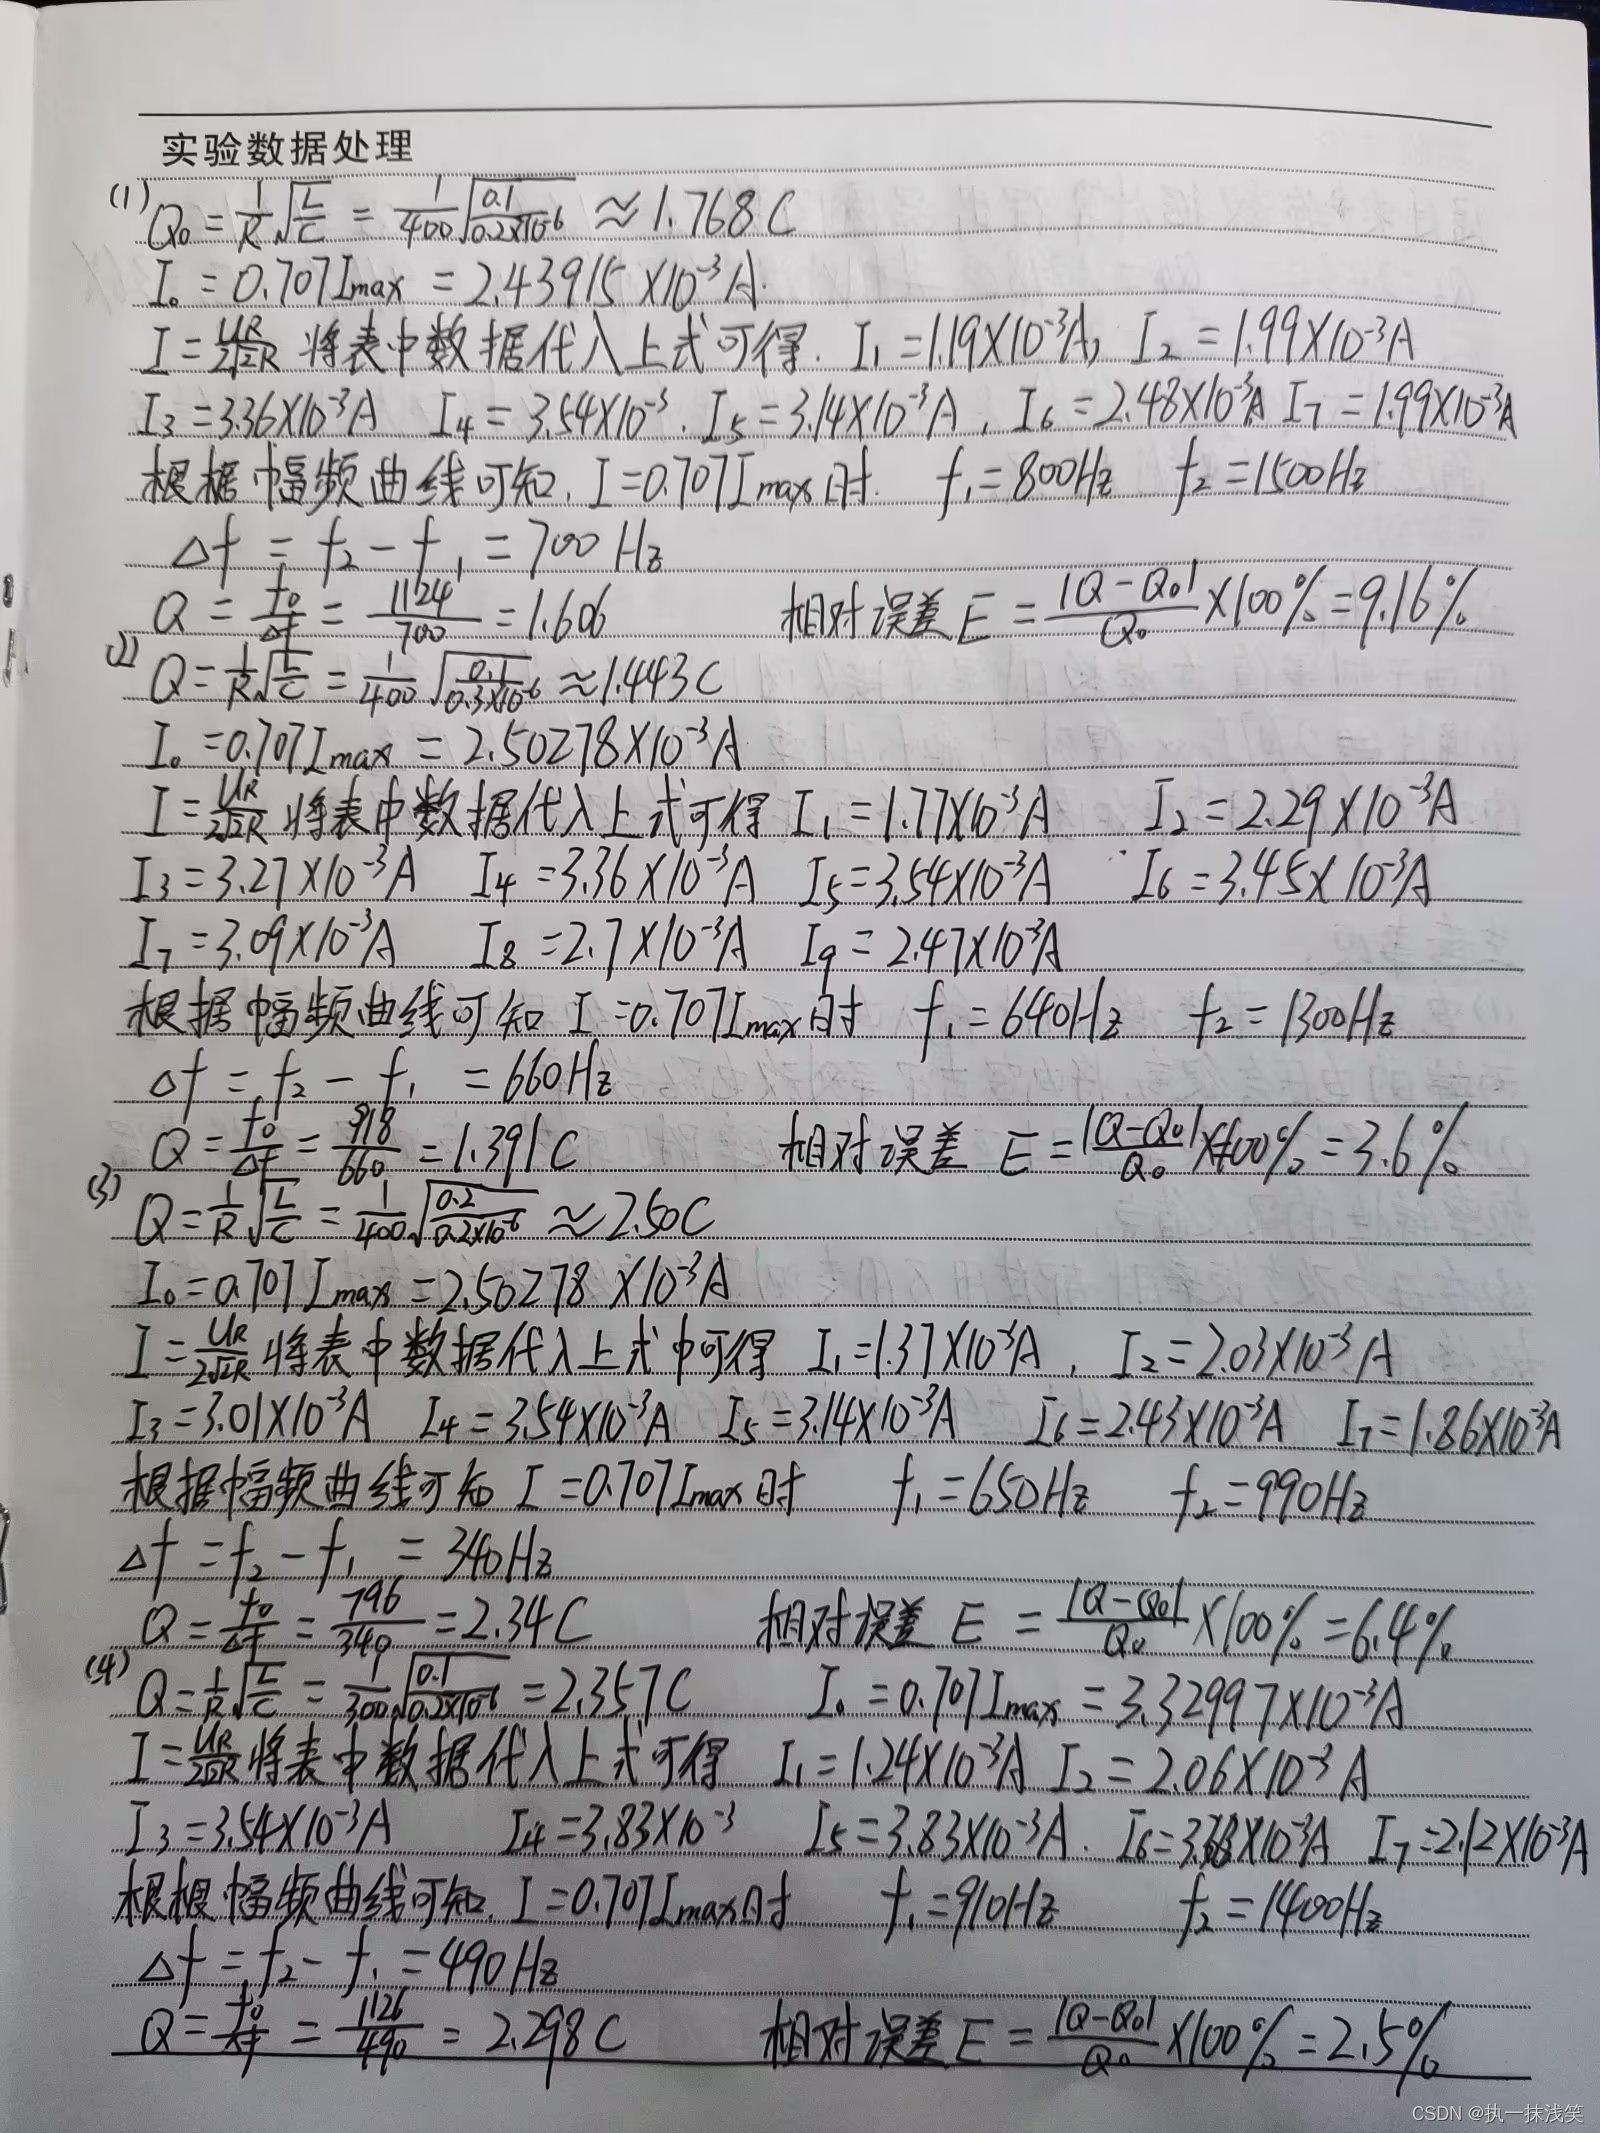 实验数据处理
(1) Q₀ = 1/R √(L/C) = 1/400 √(0.1/0.2×10⁻⁶) ≈ 1.768C
I₀ = 0.707Imax = 2.43915×10⁻³A.
I = UR/2√2R 将表中数据代入上式可得. I₁ = 1.19×10⁻³A, I₂ = 1.99×10⁻³A
I₃ = 3.36×10⁻³A I₄ = 3.54×10⁻³. I₅ = 3.14×10⁻³A, I₆ = 2.48×10⁻³A I₇ = 1.99×10⁻³A
根据幅频曲线可知, I = 0.707Imax时. f₁ = 800Hz f₂ = 1500Hz
Δf = f₂ - f₁ = 700Hz
Q = f₀/Δf = 1124/700 = 1.606 相对误差 E = |Q-Q₀|/Q₀ ×100% = 9.16%
(2) Q = 1/R √(L/C) = 1/400 √(0.1/0.3×10⁻⁶) ≈ 1.443C
I₀ = 0.707Imax = 2.50278×10⁻³A
I = UR/2√2R 将表中数据代入上式可得 I₁ = 1.77×10⁻³A I₂ = 2.29×10⁻³A
I₃ = 3.27×10⁻³A I₄ = 3.36×10⁻³A I₅ = 3.54×10⁻³A I₆ = 3.45×10⁻³A
I₇ = 3.09×10⁻³A I₈ = 2.7×10⁻³A I₉ = 2.47×10⁻³A
根据幅频曲线可知 I = 0.707Imax时 f₁ = 640Hz f₂ = 1300Hz
Δf = f₂ - f₁ = 660Hz
Q = f₀/Δf = 918/660 = 1.391C 相对误差 E = |Q-Q₀|/Q₀ ×100% = 3.6%
(3) Q = 1/R √(L/C) = 1/400 √(0.2/0.2×10⁻⁶) ≈ 2.50C
I₀ = 0.707Imax = 2.50278×10⁻³A
I = UR/2√2R 将表中数据代入上式中可得 I₁ = 1.37×10⁻³A, I₂ = 2.03×10⁻³A
I₃ = 3.01×10⁻³A I₄ = 3.54×10⁻³A I₅ = 3.14×10⁻³A I₆ = 2.43×10⁻³A I₇ = 1.86×10⁻³A
根据幅频曲线可知 I = 0.707Imax时 f₁ = 650Hz f₂ = 990Hz
Δf = f₂ - f₁ = 340Hz
Q = f₀/Δf = 796/340 = 2.34C 相对误差 E = |Q-Q₀|/Q₀ ×100% = 6.4%
(4) Q = 1/R √(L/C) = 1/300 √(0.1/0.2×10⁻⁶) = 2.357C I₀ = 0.707Imax = 3.32997×10⁻³A
I = UR/2√2R 将表中数据代入上式可得 I₁ = 1.24×10⁻³A I₂ = 2.06×10⁻³A
I₃ = 3.54×10⁻³A I₄ = 3.83×10⁻³ I₅ = 3.83×10⁻³A. I₆ = ×10⁻³A I₇ = 2.12×10⁻³A
根根幅频曲线可知, I = 0.707Imax时 f₁ = 910Hz f₂ = 1400Hz
Δf = f₂ - f₁ = 490Hz
Q = f₀/Δf = 1126/490 = 2.298C 相对误差 E = |Q-Q₀|/Q₀ ×100% = 2.5%
CSDN @执一抹浅笑